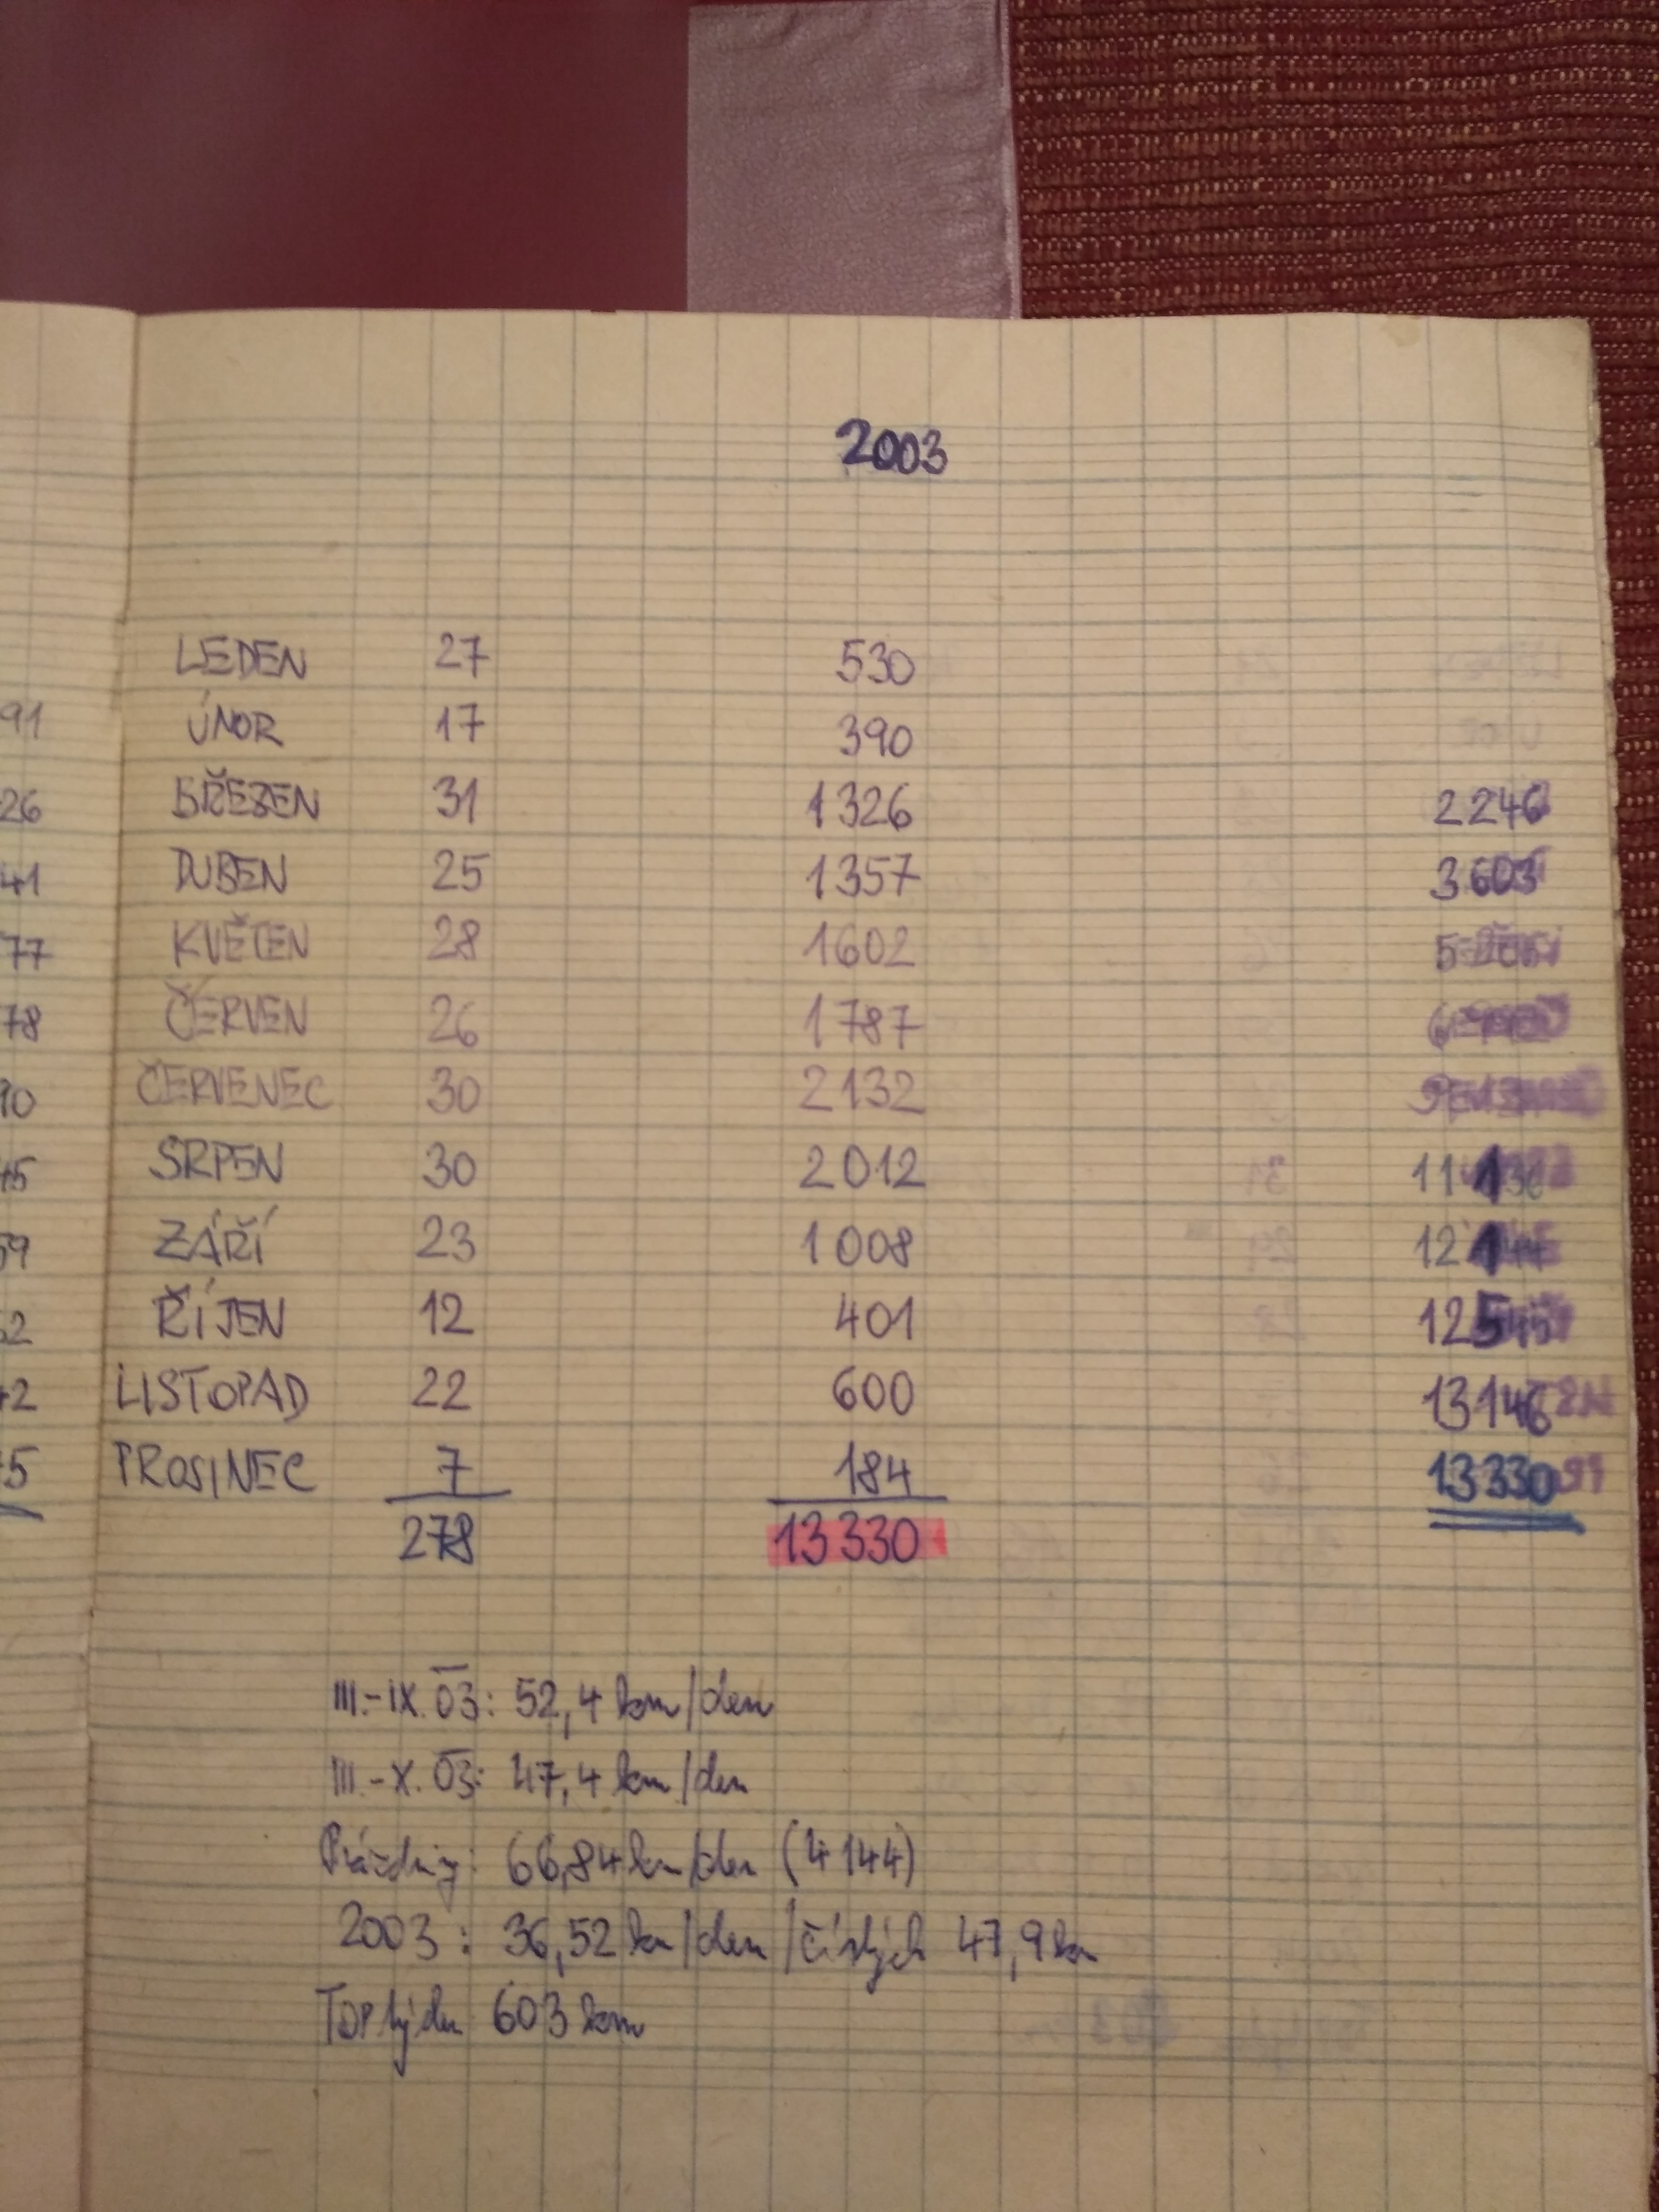 2003
LEDEN 27 530
91 ÚNOR 17 390
26 BŘEZEN 31 1326 2246
41 DUBEN 25 1357 3603
77 KVĚTEN 28 1602
78 ČERVEN 26 1787
90 ČERVENEC 30 2132
SRPEN 30 2012 11
59 ZÁŘÍ 23 1008 12
ŘÍJEN 12 401 12545
LISTOPAD 22 600 13146
PROSINEC 7 184 13330
278 13330
III.-IX. 03: 52,4 km/den
III.-X. 03: 47,4 km/den
Prázdniny: 66,84 km/den (4144)
2003: 36,52 km/den /čistých 47,9 km
TOP týden 603 km